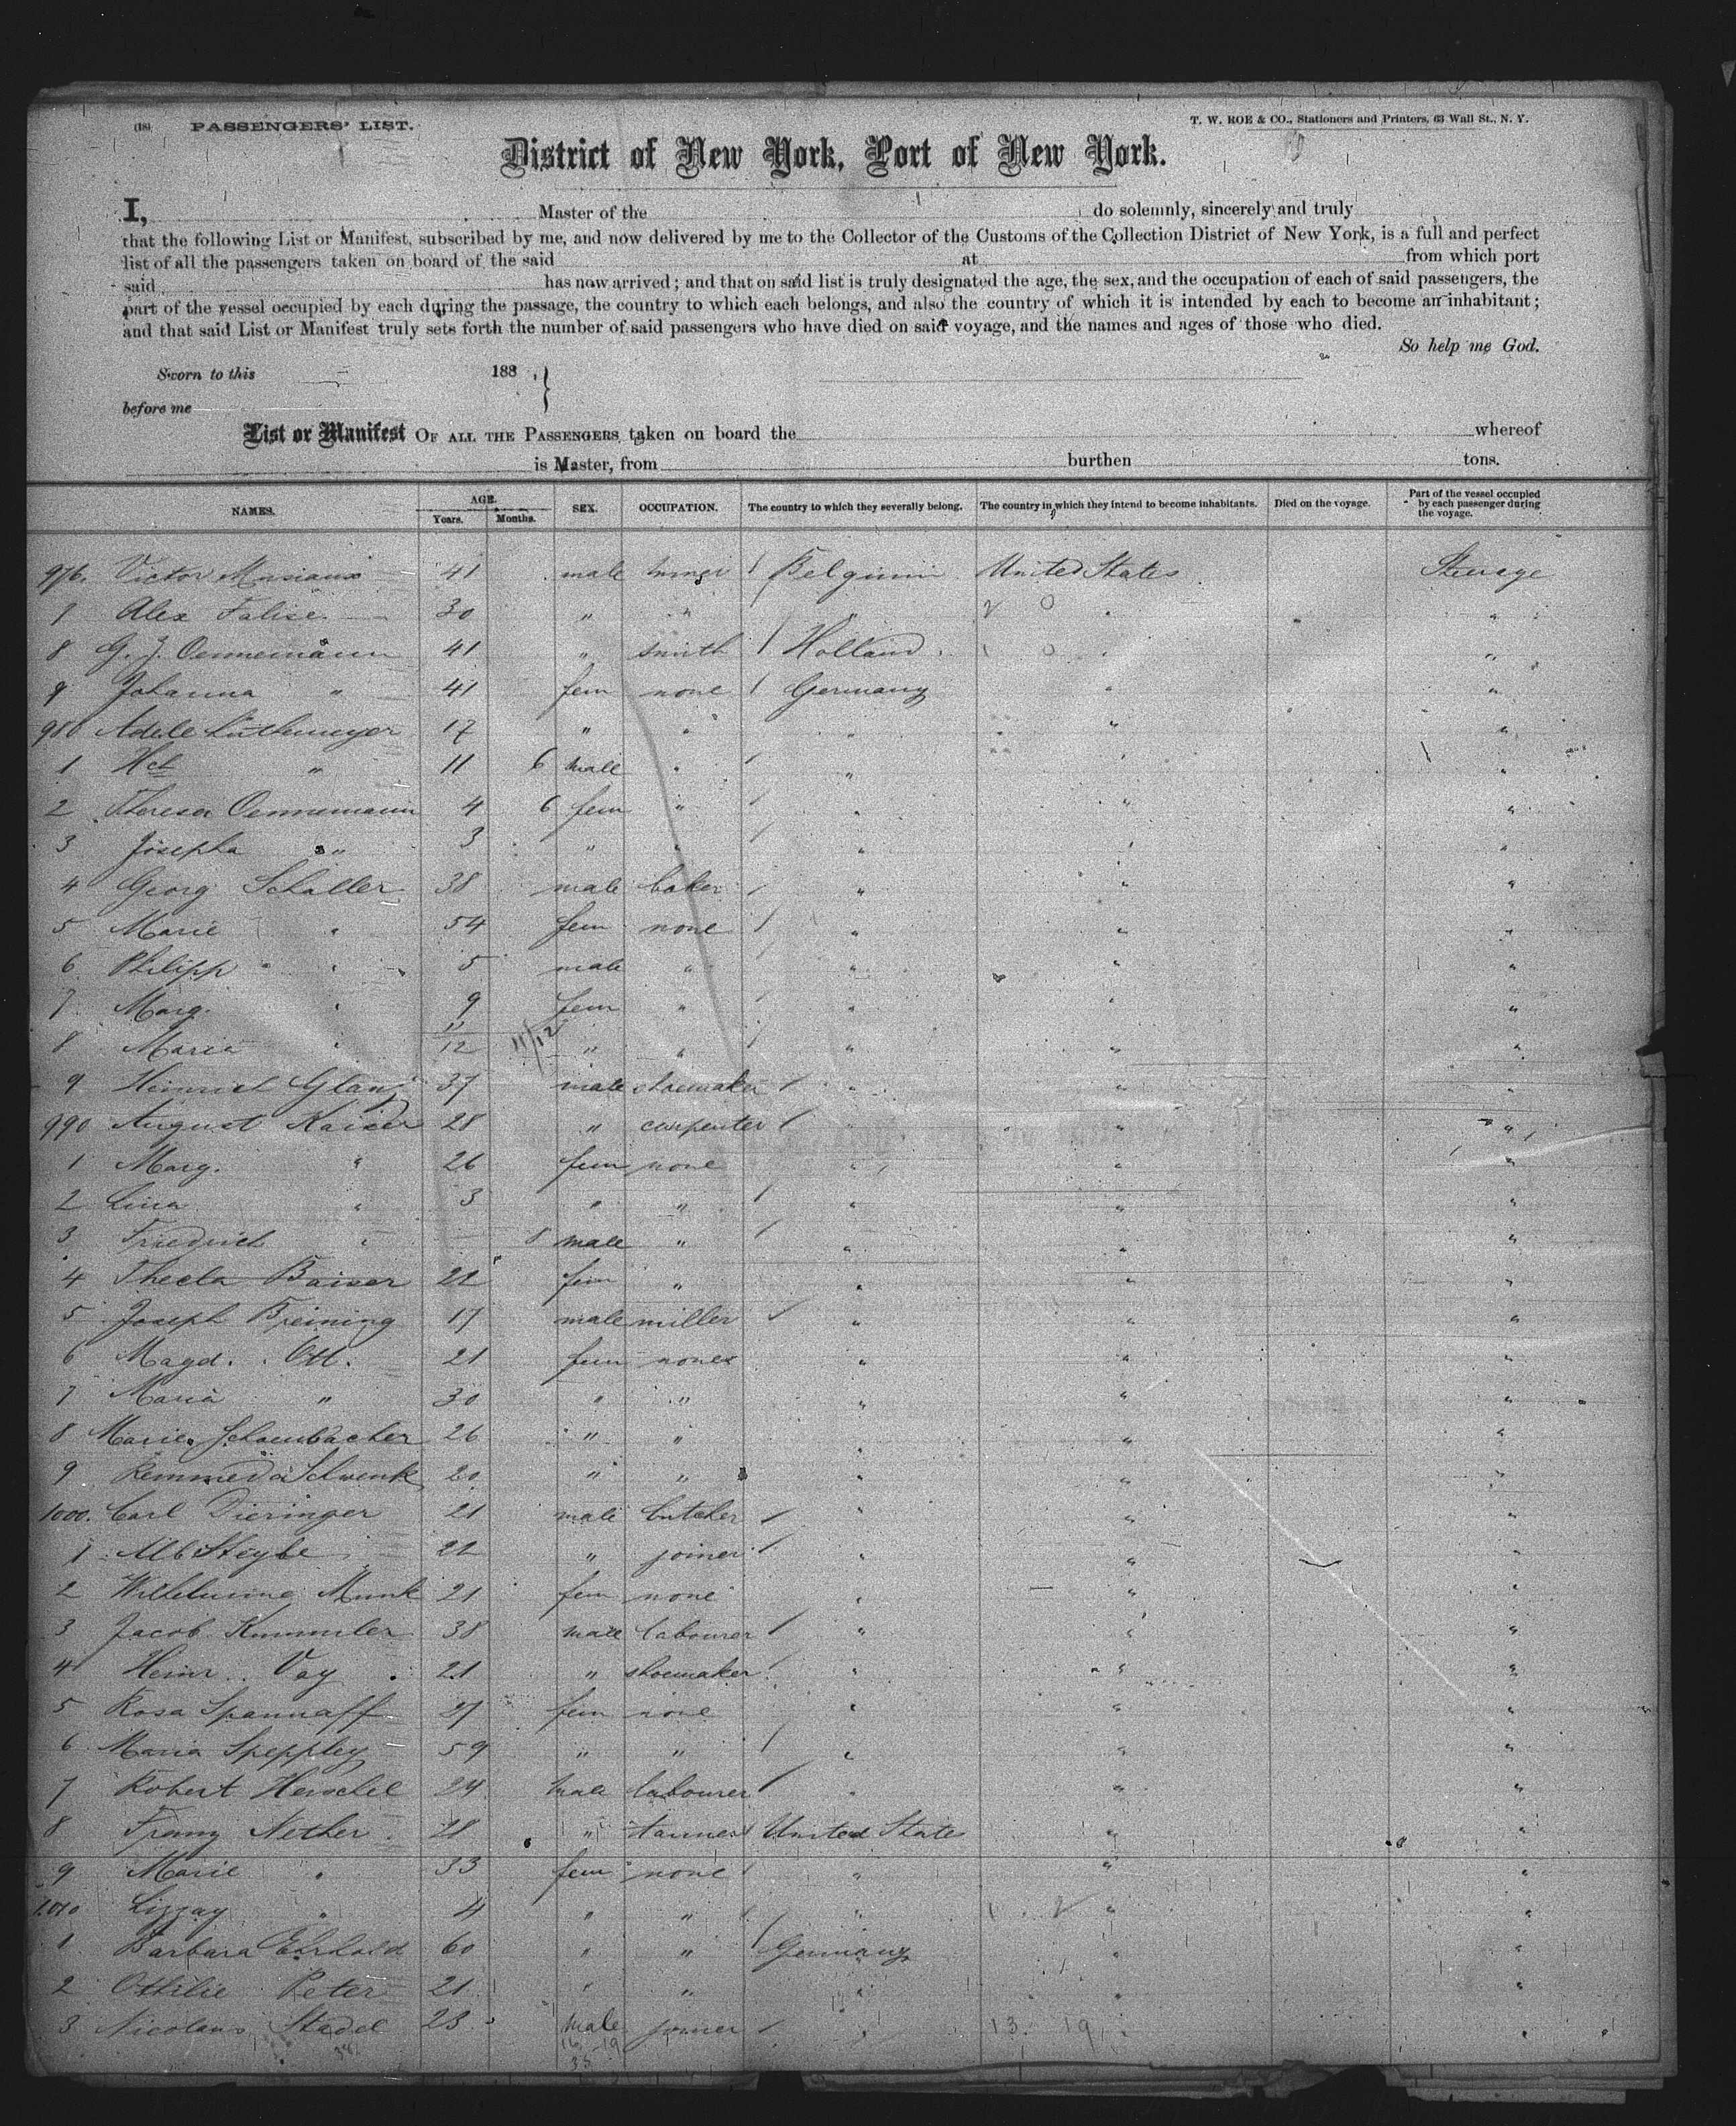 (18) PASSENGERS' LIST.
T. W. ROE & CO., Stationers and Printers, 63 Wall St., N. Y.
District of New York, Port of New York.
I, Master of the do solemnly, sincerely and truly
that the following List or Manifest, subscribed by me, and now delivered by me to the Collector of the Customs of the Collection District of New York, is a full and perfect
list of all the passengers taken on board of the said at from which port
said has now arrived; and that on said list is truly designated the age, the sex, and the occupation of each of said passengers, the
part of the vessel occupied by each during the passage, the country to which each belongs, and also the country of which it is intended by each to become an inhabitant;
and that said List or Manifest truly sets forth the number of said passengers who have died on said voyage, and the names and ages of those who died.
So help me God.
Sworn to this 188
before me
List or Manifest OF ALL THE PASSENGERS taken on board the whereof
is Master, from burthen tons.
NAMES. AGE. Years. Months. SEX. OCCUPATION. The country to which they severally belong. The country in which they intend to become inhabitants. Died on the voyage. Part of the vessel occupied by each passenger during the voyage.
976. Victor 41 male Belgium United States Steerage
1 Alex Falise 30 " " " "
8 G. J. Oennemann 41 " smith Holland "
9 Johanna " 41 fem none Germany " "
980 Adele 17 " " " " "
1 " 11 6 male " " " "
2 Theresa Oennemann 4 6 fem " " " "
3 Josepha " 3 " " " " "
4 Georg Schaller 38 male baker " " "
5 Marie " 54 fem none " " "
6 Philipp " 5 male " " " "
7 Marg. " 9 fem " " " "
8 Maria " 11/12 11/12 " " " " "
9 Heinrich Glanz 37 male shoemaker " " "
990 August Kaiser 28 " carpenter " " "
1 Marg. " 26 fem none " " "
2 Lina " 3 " " " " "
3 Friedrich " 8 male " " " "
4 Thecla 22 fem " " " "
5 Joseph Breining 17 male miller " " "
6 Magd. Ott. 21 fem none " " "
7 Maria " 30 " " " " "
8 Marie 26 " " " " "
9 Schwenk 20 " " " " "
1000. Carl Dieringer 21 male butcher " " "
1 Alb. 22 " joiner " " "
2 Wilhelmine Munk 21 fem none " " "
3 Jacob Kummler 38 male labourer " " "
4 Heinr. Vay 21 " shoemaker " " "
5 Rosa 27 fem none " " "
6 Maria Speppley 59 " " " " "
7 Robert Herschel 24 male labourer " " "
8 Franz Nether 28 " tanner United States " "
9 Marie " 33 fem none " " "
1010 Lizzay " 4 " " " " "
1 Barbara 60 " " Germany " "
2 Ottilie Peter 21 " " " " "
3 Nicolaus Stadel 23 male joiner " " "